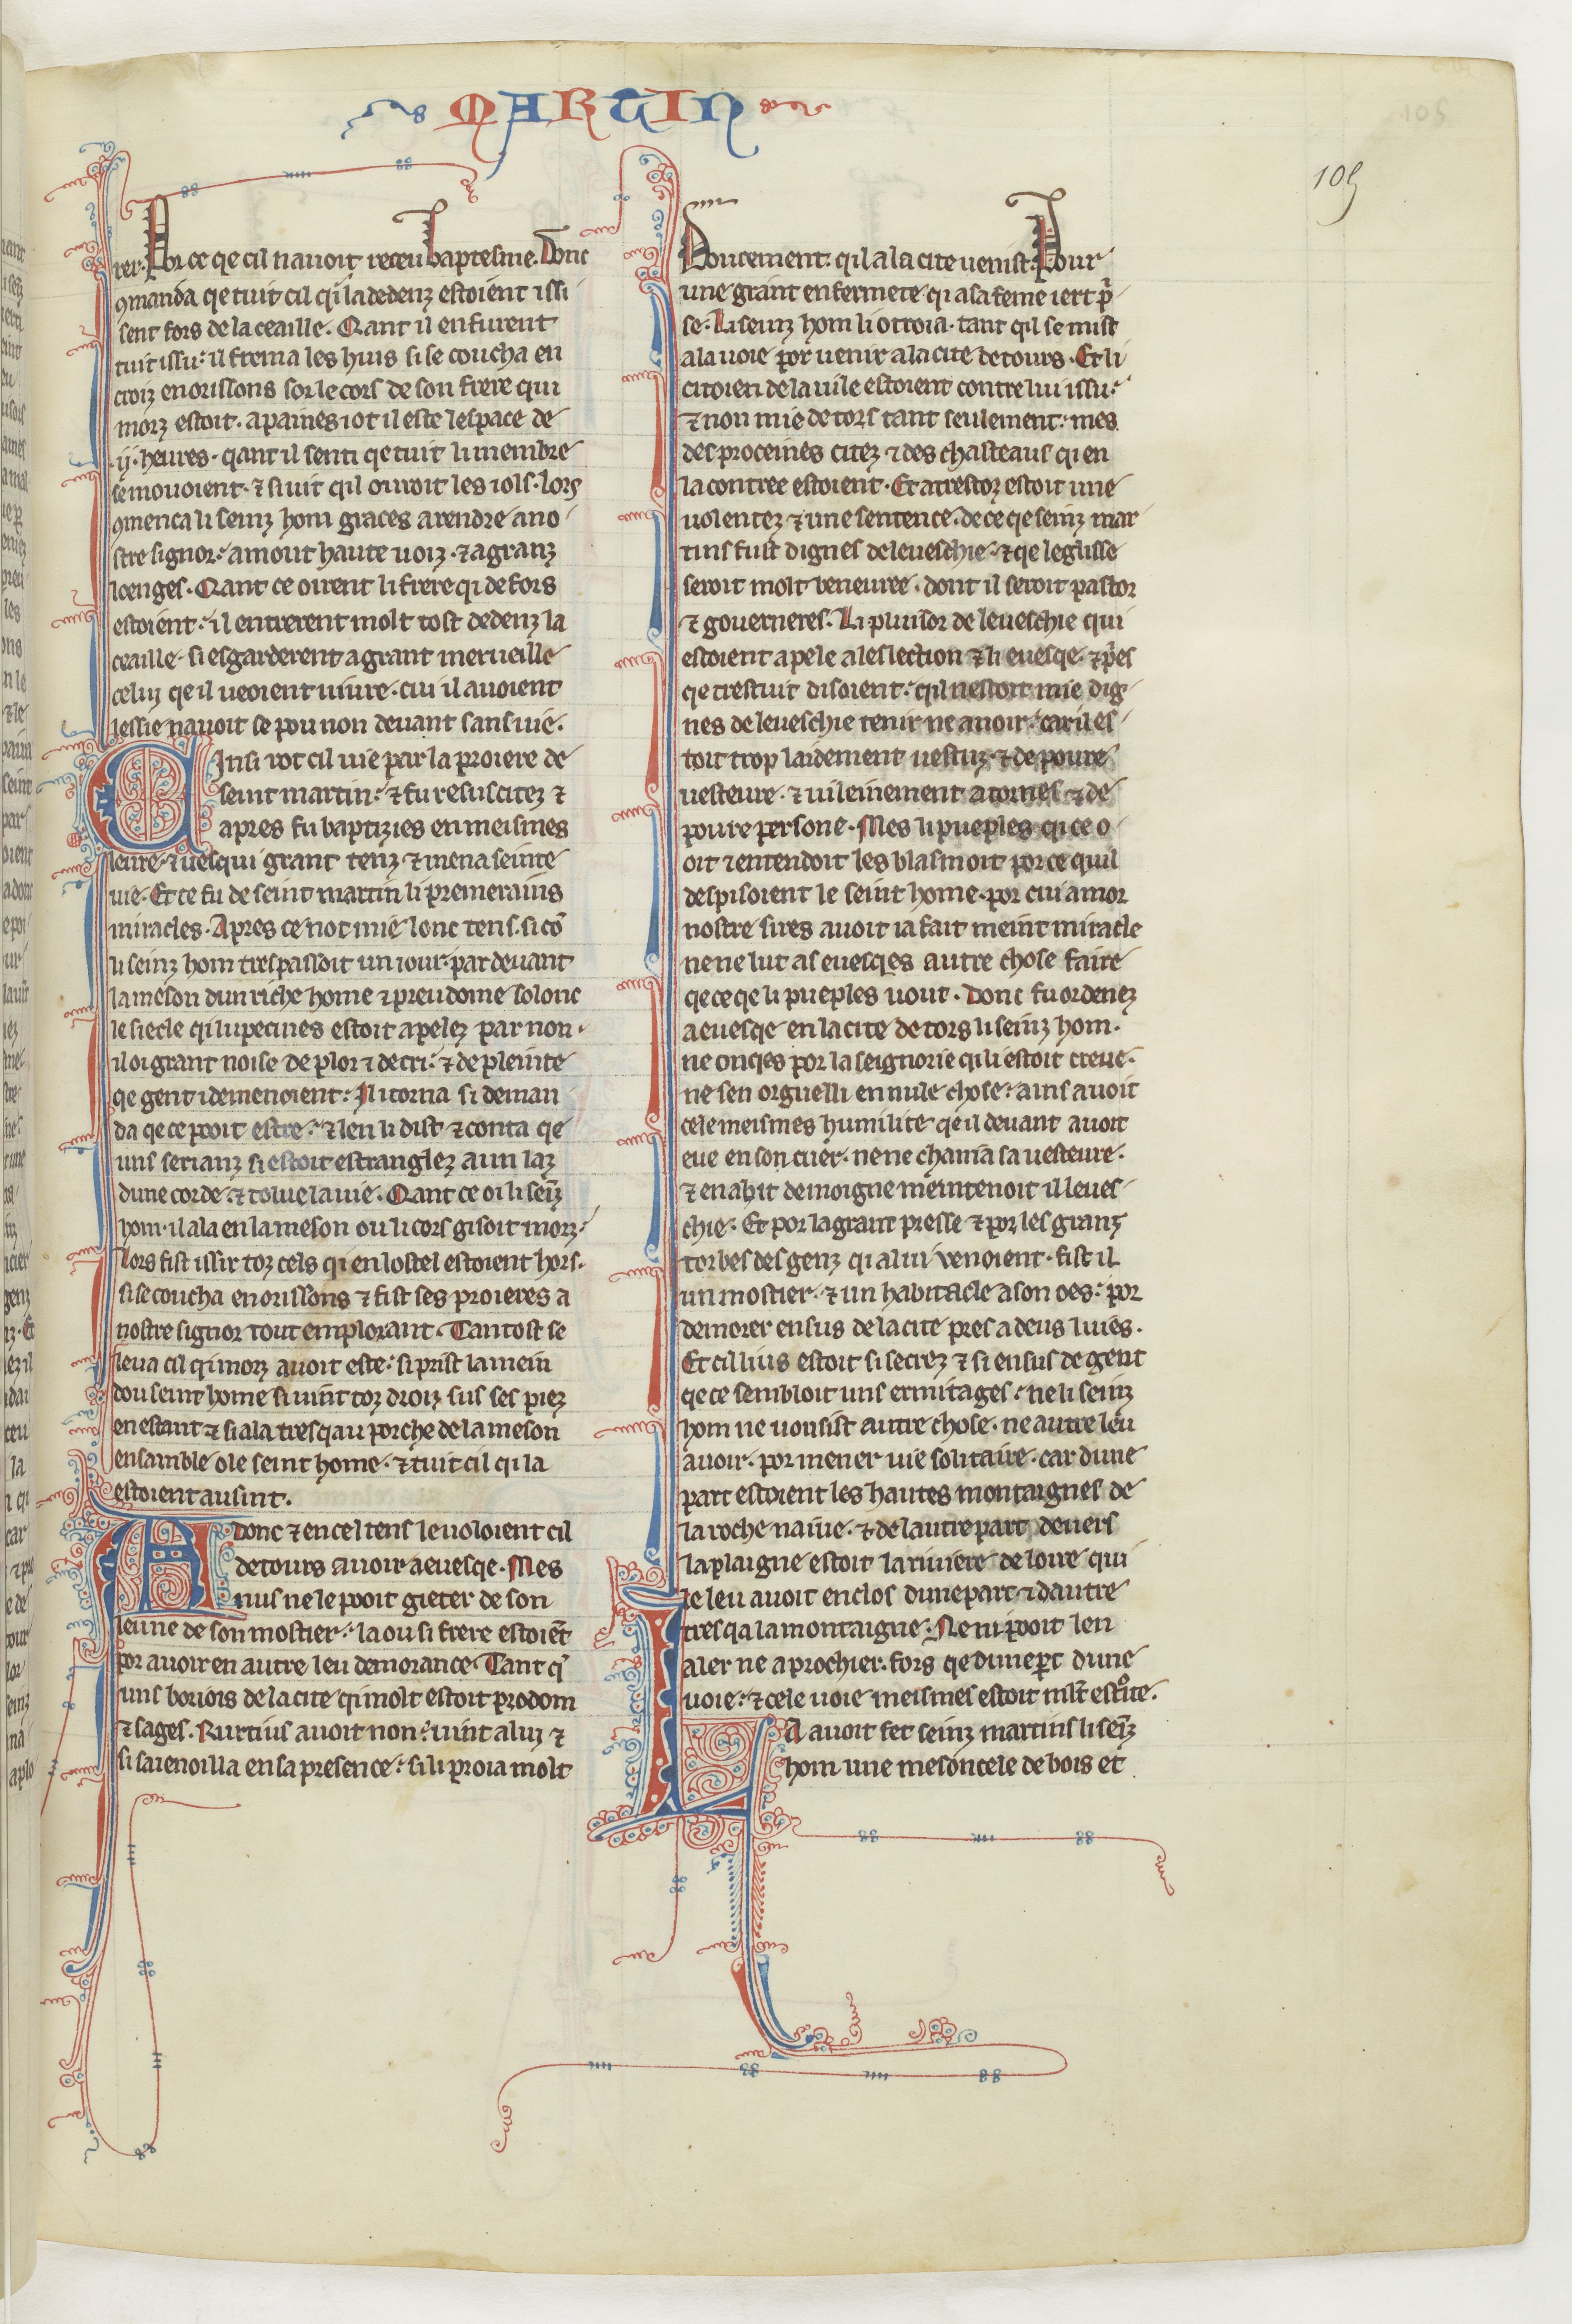 MARTIN
105
109
rer. Por ce qe cil nauoit receu baptesme. Donc
ꝯmanda qe tuit cil qi la dedenz estoient issi
sent fors de la ceaille. Qant il en furent
tuit issu: il frema les huis si se coucha en
croiz en orissons sor le cors de son frere qui
morz estoit. a paines i ot il este lespace de
.ij. heures. qant il senti qe tuit li membre
se mouoient. ⁊ si uit qil ouroit les iols. lors
ꝯmenca li seinz hom graces a rendre a no
stre signor: a mout haute uoiz. ⁊ a granz
loenges. Qant ce oirent li frere qi defors
estoient: il entrerent molt tost dedenz la
ceaille. si esgarderent a grant merueille
celui qe il ueoient uiure. cui il auoient
lessie nauoit se pou non deuant sans uie.
Einsi rot cil uie par la proiere de
seint martin: ⁊ fu resuscitez ⁊
apres fu baptizies en meismes
leure. ⁊ uesqui grant tenz ⁊ mena seinte
uie. Et ce fu de seint martin li premerains
miracles. Apres ce not mie lonc tens. si cō
li seinz hom trespassoit un iour. par deuant
la meson dun riche home ⁊ preudome solonc
le siecle qi lupecines estoit apelez par non.
il oi grant noise de plor ⁊ de cri: ⁊ de pleinte
qe gent i demenoient: Il i torna si deman
da qe ce pooit estre: ⁊ len li dist ⁊ conta qe
uns serianz si estoit estranglez a un laz
dune corde. ⁊ tolue la uie. Qant ce oi li seīz
hom. il ala en la meson ou li cors gisoit morz:
lors fist issir toz cels qi en lostel estoient hors.
si se coucha en orissons ⁊ fist ses proieres a
nostre signor tout emplorant. Tantost se
leua cil qi morz auoit este: si prist la mein
dou seint home si uint toz droiz sus ses piez
en estant ⁊ si ala tresqau porche de la meson
ensamble o le seint home. ⁊ tuit cil qi la
estoient ausint.
Adonc ⁊ en cel tens le uoloient cil
de tours auoir a euesqe. Mes
nus ne le pooit gieter de son
leu ne de son mostier: la ou si frere estoiēt
por auoir en autre leu demorance. Tant qͥ
uns boriois de la cite qi molt estoit prodom
⁊ sages. Rurtius auoit non: uint a lui ⁊
si saienoilla en sa presence: si li proia molt
doucement: qil a la cite uenist. Pour
une grant enfermete qi a sa feme iert pͥ
se: Li seinz hom li otroia. tant qil se mist
a la uoie por uenir a la cite de tours. Et li
citoien de la uile estoient contre lui issu:
⁊ non mie de tors tant seulement: mes
des proceines citez ⁊ des chasteaus qi en
la contree estoient. Et a trestoz estoit une
uolentez ⁊ une sentence. de ce qe seinz mar
tins fust dignes de leueschie: ⁊ qe leglisse
seroit molt beneuree. dont il seroit pastor
⁊ gouerneres. Li pluisor de leueschie qui
estoient apele a leslection ⁊ li euesqe. ⁊ pͥes
qe trestuit disoient: qil nestoit mie dig
nes de leueschie tenir ne auoir: car il es
toit trop laidement uestuz. ⁊ de poure
uesteure. ⁊ uileinement atornes ⁊ de
poure persone. Mes li pueples qi ce o
oit ⁊ entendoit les blasmoit por ce quil
despisoient le seint home. por cui amor
nostre sires auoit ia fait meint miracle
ne ne lut as euesqes autre chose faire
qe ce qe li pueples uout. Donc fu ordenez
a euesqe en la cite de tors li seinz hom.
ne onqes por la seignorie qi li estoit creue.
ne sen orguelli en nule chose: ains auoit
cele meismes humilite qe il deuant auoit
eue en son cuer. ne ne chania sa uesteure.
⁊ en abit de moigne meintenoit il leues
chie. Et por la grant presse ⁊ por les granz
torbes des genz qi a lui uenoient. fist il
un mostier. ⁊ un habitacle a son oes: por
demorer en sus de la cite pres a deus liues.
Et cil lius estoit si secrez ⁊ si en sus de gent
qe ce sembloit uns ermitages: ne li seinz
hom ne uousist autre chose. ne autre leu
auoir. por mener uie solitaire. car dune
part estoient les hautes montaignes de
la roche naiue. ⁊ de lautre part deuers
la plaigne estoit la riuiere de loire qui
le leu auoit enclos dune part ⁊ dautre
tresqa la montaigne. Ne ni pooit len
aler ne aprochier. fors qe dune pt dune
uoie: ⁊ cele uoie meismes estoit mlt estͦite.
La auoit fet seinz martins li seīz
hom une mesoncele de bois et